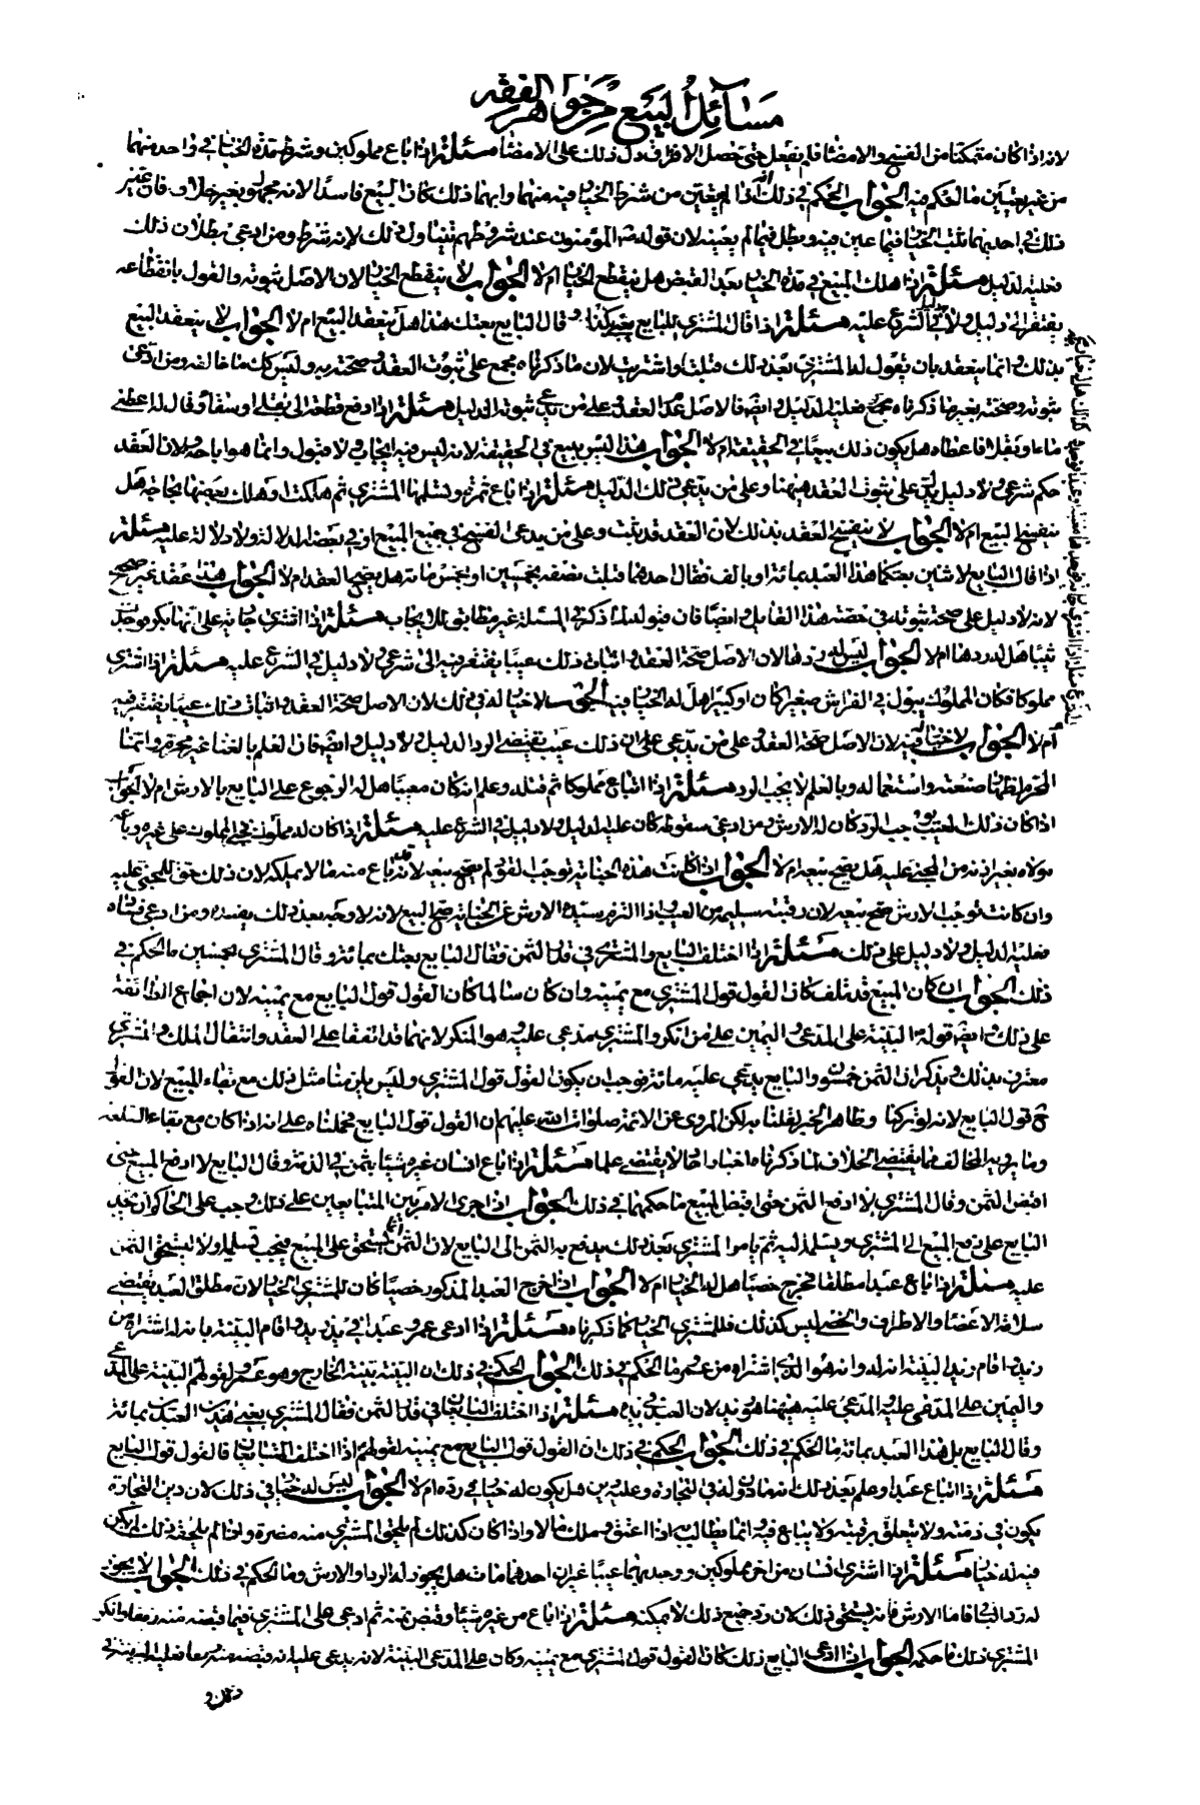 مسائل البيع من جواهر الفقه
لانه اذا كان متمكنا من الفسخ والامضاء فلم يفعل حتى حصل الافتراق دل ذلك على الامضاء مسئلة اذا باع مملوكين وشرط مدة الخيار في واحد منهما
من غير تعيين ما الحكم فيه الجواب الحكم في ذلك انه اذا لم يعين من شرط الخيار فيه منهما وابهما ذلك كان البيع فاسدا لانه مجهول بغير خلاف فان عين
ذلك في احديهما ثبت الخيار فيما عين فيه وبطل فيما لم يعينه لان قوله المؤمنون عند شروطهم يتناول ذلك لانه شرط ومن ادعى بطلان ذلك
فعليه الدليل مسئلة اذا هلك المبيع في مدة الخيار بعد القبض هل ينقطع الخيار ام لا الجواب لا ينقطع الخيار لان الاصل ثبوته والقول بانقطاعه
يفتقر الى دليل ولا دليل في الشرع عليه مسئلة اذا قال المشتري للبايع بعني كذا وقال البايع بعتك هذا هل ينعقد البيع ام لا الجواب لا ينعقد البيع
بذلك وانما ينعقد بان يقول له المشتري بعد ذلك قبلت او اشتريت لان ما ذكرناه مجمع على ثبوت العقد وصحته به وليس كك ما خالفه ومن ادعى
ثبوته وصحته بغير ما ذكرناه فعليه الدليل وايضا فالاصل عدم العقد وعلى من يدعي ثبوته الدليل مسئلة اذا دفع قطعة الى بقلي او سقاء وقال له اعطني
ماء او بقلا فاعطاه هل يكون ذلك بيعا في الحقيقة ام لا الجواب هذا ليس ببيع في الحقيقة لانه ليس فيه ايجاب ولا قبول وانما هو اباحة ولان العقد
حكم شرعي ولا دليل يدل على ثبوت العقد هيهنا وعلى من يدعي ذلك الدليل مسئلة اذا باع ثمرة وتسلمها المشتري ثم هلكت او هلك بعضها بجائحة هل
ينفسخ البيع ام لا الجواب لا ينفسخ العقد بذلك لان العقد قد ثبت وعلى من يدعي الفسخ في جميع المبيع او في بعضه الدلالة ولا دلالة عليه مسئلة
اذا قال البايع لاثنين بعتكما هذا العبد بمائة او بالف فقال احدهما قبلت نصفه بخمسين او بخمس مائة هل يصح العقد ام لا الجواب هذا عقد غير صحيح
لانه لا دليل على صحة ثبوته في حصة هذا القابل وايضا فان قبوله لما ذكر في المسئلة غير مطابق للايجاب مسئلة اذا اشترى جارية على انها بكر فوجدت
ثيبا هل له ردها ام لا الجواب ليس له ردها لان الاصل صحة العقد واثبات ذلك عيبا يفتقر فيه الى شرع ولا دليل في الشرع عليه مسئلة اذا اشترى
مملوكا فكان المملوك يبول في الفراش صغيرا كان او كبيرا هل له الخيار فيه الجواب لا خيار له في ذلك لان الاصل صحة العقد واثبات ذلك عيبا يفتقر فيه
ام لا الجواب لا خيار فيه لان الاصل صحة العقد وعلى من يدعي على ان ذلك عيب يقتضي الرد الدليل ولا دليل وايضا فان العلم بالغناء غير محرم وانما
المحرم اظهار صنعته واستعماله وبالعلم لا يجب الرد مسئلة اذا ابتاع مملوكا ثم قتله وعلم انه كان معيبا هل له الرجوع على البايع بالارش ام لا الجواب
اذا كان ذلك لعيب يوجب الرد كان له الارش ومن ادعى سقوطه كان عليه الدليل ولا دليل في الشرع عليه مسئلة اذا كان له مملوك فجنى المملوك على غيره وباعه
مولاه بغير اذنه من المجني عليه هل يصح بيعه ام لا الجواب اذا كانت هذه الجناية توجب القود لم يصح بيعه لانه قد باع منه ما لا يملكه لان ذلك حق للمجني عليه
وان كانت توجب الارش صح بيعه لان رقبته سليمة من العيب فاذا التزم سيده الارش عن الجناية صح البيع لانه لا وجه بعد ذلك يفسده ومن ادعى فساده
فعليه الدليل ولا دليل على ذلك مسئلة اذا اختلف البايع والمشتري في قدر الثمن فقال البايع بعتك بمائة وقال المشتري بخمسين ما الحكم في
ذلك الجواب ان كان المبيع قد تلف كان القول قول المشتري مع يمينه وان كان سالما كان القول قول البايع مع يمينه لان اجماع الطائفة
على ذلك وايضا قوله البينة على المدعي واليمين على من انكر والمشتري مدعى عليه وهو المنكر لانهما قد اتفقا على العقد وانتقال الملك والمشتري
معترف بذلك ويذكر ان الثمن خمسون والبايع يدعي عليه مائة فوجب ان يكون القول قول المشتري وليس يلزمنا مثل ذلك مع بقاء المبيع لان القول
ح قول البايع لانه لو تركنا وظاهر الخبر لقلنا به لكن المروي عن الائمة صلوات الله عليهم ان القول قول البايع فحملناه على انه اذا كان مع بقاء السلعة
وما يرويه المخالف مما يقتضي الخلاف لما ذكرناه اخبار احاد لا يقتضي علما مسئلة اذا باع انسان غيره شيئا بثمن في الذمة وقال البايع لا ادفع المبيع حتى
اقبض الثمن وقال المشتري لا ادفع الثمن حتى اقبض المبيع ما حكمهما في ذلك الجواب اذا جرى الامر بين المتبايعين على ذلك وجب على الحاكم ان يجبر
البايع على دفع المبيع الى المشتري ويسلمه اليه ثم يامر المشتري بعد ذلك بدفع الثمن الى البايع لان الثمن انما يستحق على المبيع فيجب تسليمه ولا ليستحق الثمن
عليه مسئلة اذا باع عبدا مطلقا فخرج خصيا هل له الخيار ام لا الجواب اذا خرج العبد المذكور خصيا كان للمشتري الخيار لان مطلق العبد يقتضي
سلامة الاعضاء والاطراف والخصي ليس كذلك فللمشتري الخيار كما ذكرناه مسئلة اذا ادعى عمرو عبدا في يد زيد واقام البينة بانه له اشتراه من
زيد واقام زيد البينة انه له وانه هو الذي اشتراه من عمرو ما الحكم في ذلك الجواب الحكم في ذلك ان البينة بينة الخارج وهو عمرو لقولهم البينة على المدعي
واليمين على المدعى عليه والمدعى عليه هيهنا هو زيد لان العبد في يده مسئلة اذا اختلف المتبايعان في قدر الثمن فقال المشتري بعتني هذين العبدين بمائة
وقال البايع بل هذا العبد بمائة ما الحكم في ذلك الجواب الحكم في ذلك ان القول قول البايع مع يمينه لقولهم اذا اختلف المتبايعان فالقول قول البايع
مسئلة اذا ابتاع عبدا وعلم بعد ذلك انه ماذون له في التجارة وعليه دين هل يكون له خيار في رده ام لا الجواب ليس له خيار في ذلك لان دين التجارة
يكون في ذمته ولا يتعلق برقبته ولا يباع فيه وانما يطالب به اذا اعتق وملك مالا واذا كان كذلك لم يلحق المشتري منه مضرة واذا لم يلحقه ذلك لم يكن
فيه له خيار مسئلة اذا اشترى انسان من اخر مملوكين ووجد بهما عيبا غير ان احدهما مات هل يجوز له الرد او الارش وما الحكم في ذلك الجواب لا يجوز
له رد الباقي فاما الارش فانه يستحق ذلك لان رد جميع ذلك لا يمكنه مسئلة اذا باع من غيره شيئا وقبض ثمنه ثم ادعى على المشتري فيما قبضه منه زيفا وانكر
المشتري ذلك ما حكمه الجواب اذا ادعى البايع ذلك كان القول قول المشتري مع يمينه وكان على المدعي البينة لانه يدعي عليه انه قبض منه زيفا فعليه البينة في
ذلك و